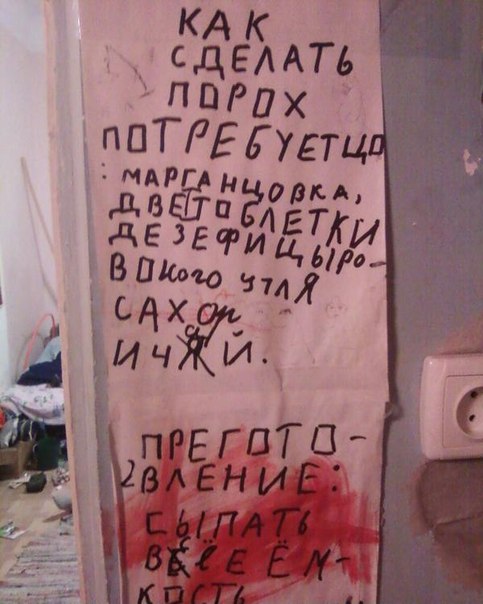 КАК
СДЕЛАТЬ
ПОРОХ
ПОТРЕБУЕТЦО
: МАРГАНЦОВКА,
ДВЕ ТОБЛЕТКИ
ДЕЗЕФИЦЫРО-
ВОКОГО УГЛЯ
САХОР
И ЧЯЙ.
ПРЕГОТО-
ВЛЕНИЕ:
СЫПАТЬ
ВСЁ В ЕЁМ-
КОСТЬ